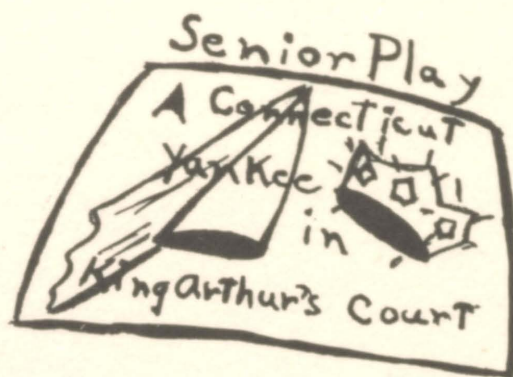 Senior Play
A Connecticut
Yankee
in
King Arthur's Court